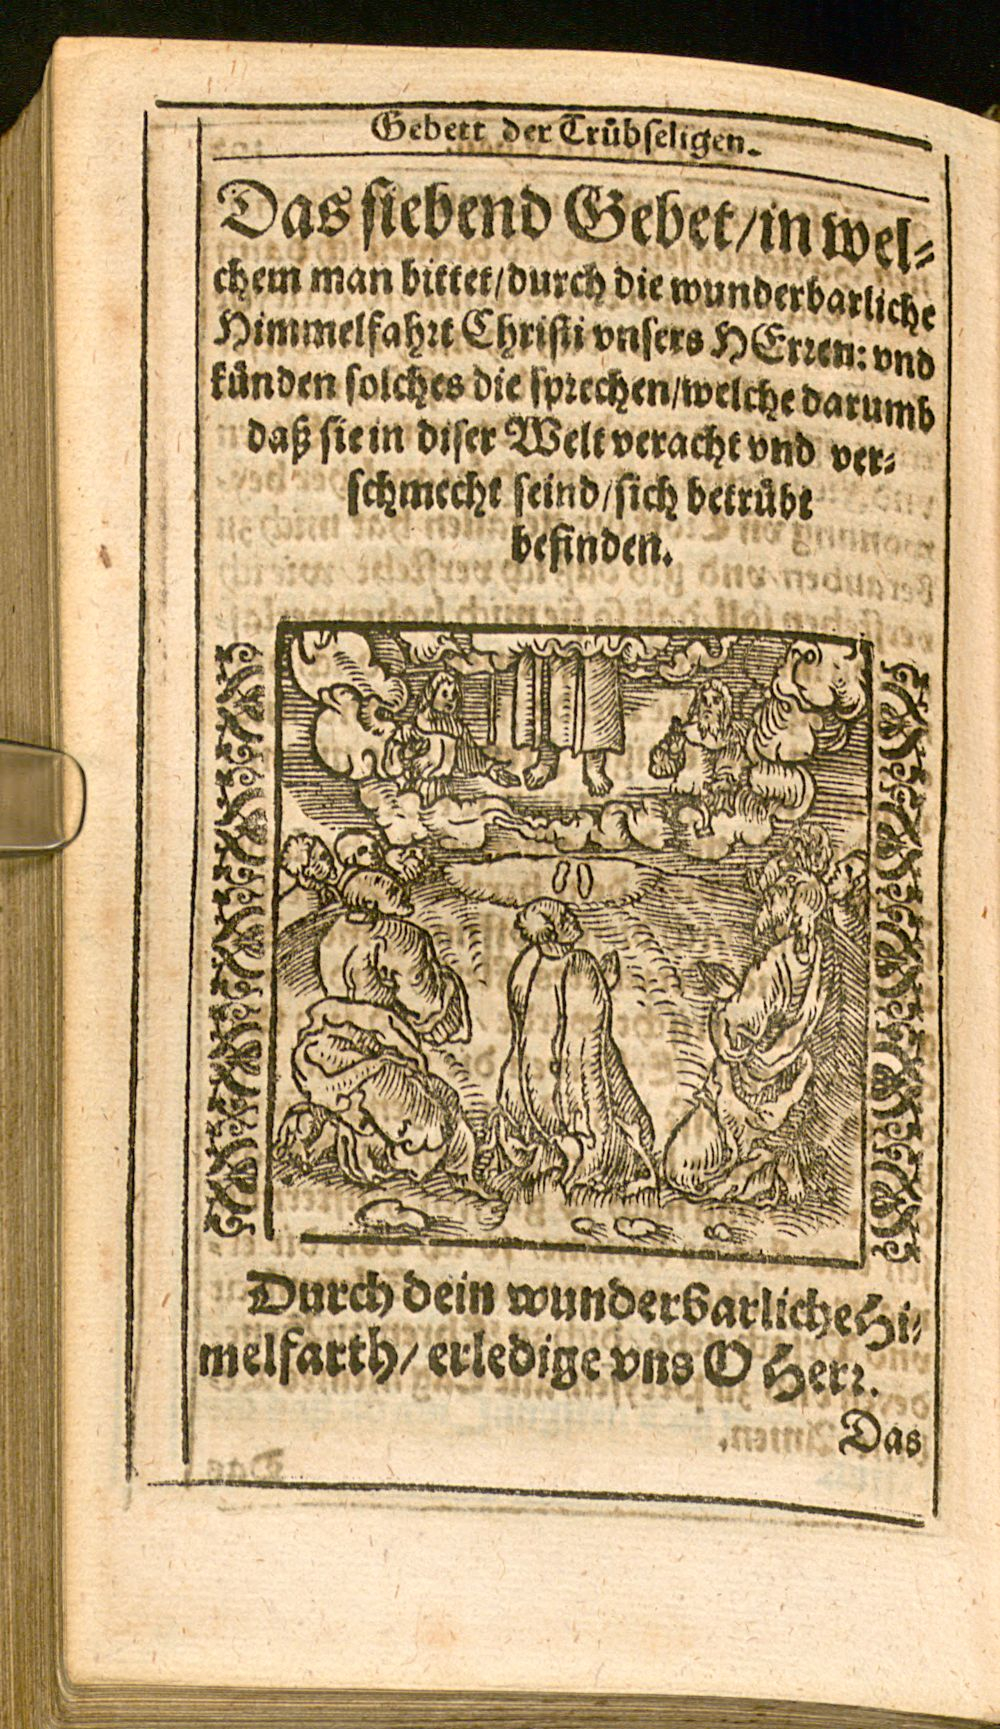 Gebett der Trübseligen.
Das siebend Gebet/in wel-
chem man bittet/durch die wunderbarliche
Himmelfahrt Christi vnsers HErren: vnd
künden solches die sprechen/welche darumb
daß sie in diser Welt veracht vnd ver-
schmecht seind/sich betrübt
befinden.
Durch dein wunderbarliche Hi-
melfarth/ erledige vns O Herr.
Das